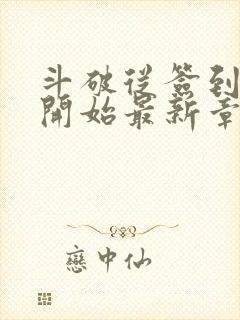 斗破從簽到
開始最新章
戀中仙